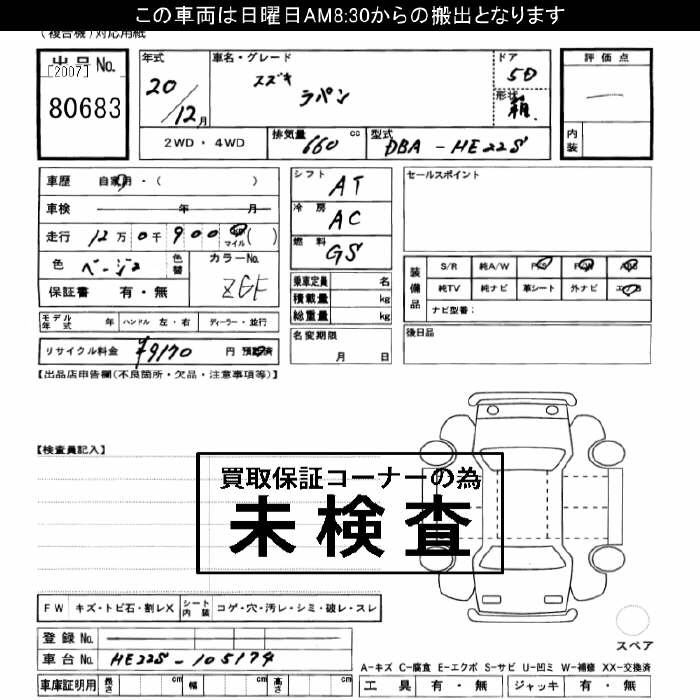 この車両は日曜日AM8:30からの搬出となります
(複合機)対応用紙
出品No.
[2007]
80683
年式
20/12月
車名・グレード
スズキ
ラパン
ドア
5D
形状
箱
評価点
—
内装
2WD・4WD
排気量 660 cc
型式 DBA-HE22S
車歴 自家用・( )
車検 年 月
走行 12万0千900 km マイル ( )
色 ベージュ 色替
カラーNo. ZGF
保証書 有・無
シフト AT
冷房 AC
燃料 GS
乗車定員 名
積載量 kg
総重量 kg
セールスポイント
装備品
S/R 純A/W P/S P/W ABS
純TV 純ナビ 革シート 外ナビ エアB
ナビ型番:
モデル年式 年 ハンドル 左・右 ディーラー・並行
名変期限
月 日
後日品
リサイクル料金 ¥9170 円 預託済
【出品店申告欄(不良箇所・欠品・注意事項等)】
【検査員記入】
買取保証コーナーの為
未検査
FW キズ・トビ石・割レX シート内装 コゲ・穴・汚レ・シミ・破レ・スレ
スペア
登録No.
車台No. HE22S-105174
A-キズ C-腐食 E-エクボ S-サビ U-凹ミ W-補修 XX-交換済
車庫証明用 長さ cm 幅 cm 高さ cm
工具 有・無 ジャッキ 有・無